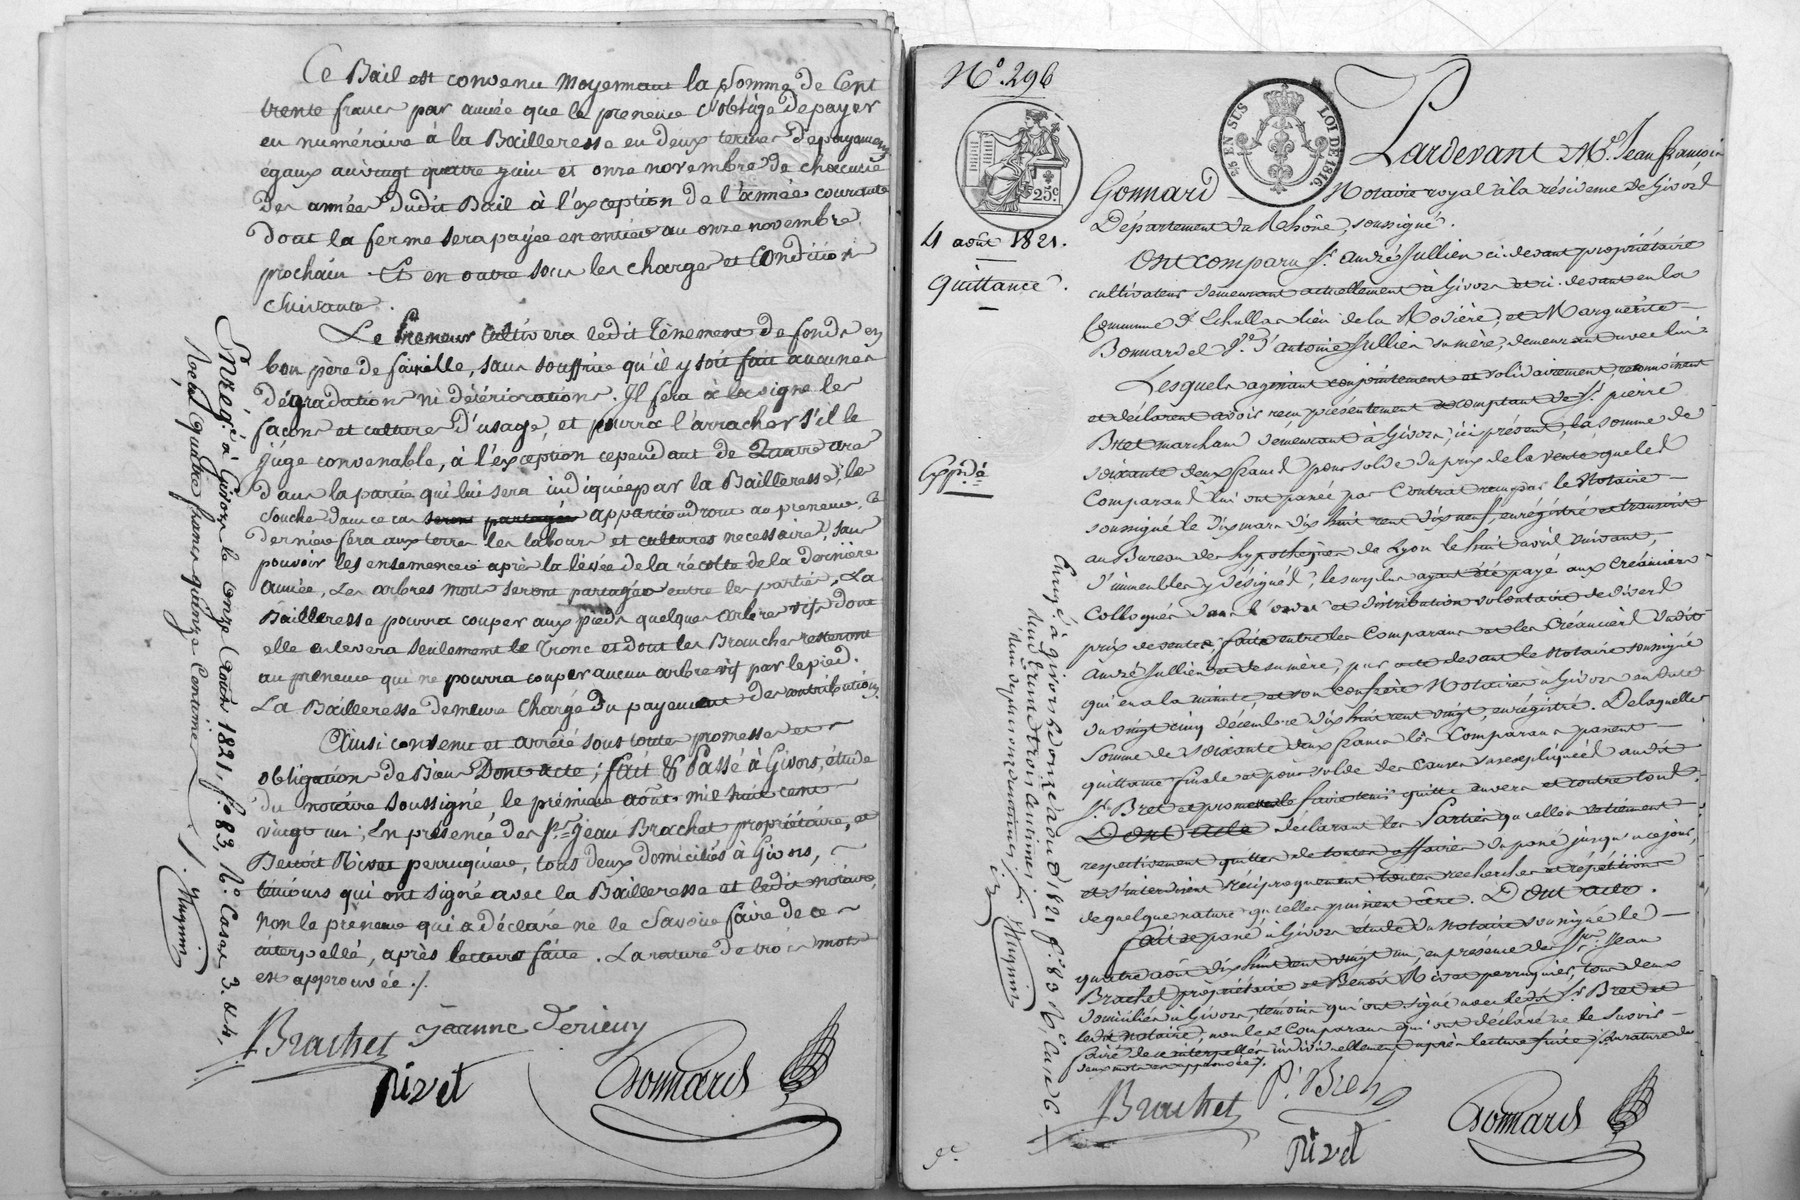 Ce Bail est convenu moyennant la Somme de Cent
trente francs par année que le preneur s'oblige de payer
en numéraire à la Bailleresse en deux termes de payements
égaux au vingt quatre juin et onze novembre de chacune
des années dudit Bail à l'exception de l'année courante
dont la ferme sera payée en entier au onze novembre
prochain. Et en outre sous les charges et Conditions
suivantes.
Le Preneur cultivera ledit tènement de fonds en
bon père de famille, sans souffrir qu'il y soit fait aucunes
dégradations ni détériorations. Il fera à la vigne les
façons et cultures d'usage, et pourra l'arracher s'il le
juge convenable, à l'exception cependant de Quatre ares
dans la partie qui lui sera indiquée par la Bailleresse, les
souches dans ce cas seront partagées appartiendront au preneur. Ce
dernier fera aux terres les labours et cultures necessaires, sans
pouvoir les ensemencer après la levée de la récolte de la dernière
année. Les arbres morts seront partagés entre les parties. La
Bailleresse pourra couper aux pieds quelques arbres vifs dont
elle enlevera seulement le Tronc et dont les Branches resteront
au preneur qui ne pourra couper aucun arbre vif par le pied.
La Bailleresse demeure chargée du payement des contributions.
Ainsi convenu et arrêté sous toute promesse et
obligations de Biens Dont acte; fait & Passé à Givors, étude
du notaire soussigné le premier août mil huit cent
vingt un; En présence des Srs Jean Brachet propriétaire, et
Benoit Rivet perruquier, tous deux domiciliés à Givors,
témoins qui ont signé avec la Bailleresse et ledit notaire,
non le preneur qui a déclaré ne le Savoir faire de ce
interpellé, après lecture faite. La rature de trois mots
est approuvée ./.
Brachet Jeanne
Rivet Gonnard
Enregé à Givors le onze août 1821, fo 83, No Cases 3 & 4,
Reçu quatre francs quinze Centimes
N° 296
25 EN SUS
LOI DE 1816.
25c.
Pardevant Me Jean françois
Gonnard Notaire royal à la résidence de Givors
Département du Rhône, soussigné.
4 août 1821.
Quittance.
Ont comparu Sr andré Jullien ci-devant propriétaire
cultivateur demeurant actuellement à Givors et ci-devant en la
Commune d'Echallas lieu de la Rosière, et Marguerite
Bonnardel Ve d'antoine Jullien sa mère, demeurant avec lui.
Lesquels agissant conjointement et solidairement, reconnoissent
et déclarent avoir reçu présentement et comptant de Sr pierre
Bret marchand demeurant à Givors, ici présent, la somme de
soixante deux francs pour solde du prix de la vente que les
Comparans lui ont passée par Contrat reçu par le Notaire
soussigné le dix mars dix huit cent dix neuf, enregistré et transcrit
au Bureau des hypothèques de Lyon le huit avril suivant,
d'immeubles y désignés, le surplus ayant été payé aux Créanciers
Colloqués dans l'ordre et distribution volontaire desdits
prix de vente, faite entre les Comparans et les Créanciers dudit
André Jullien et de sa mère, par acte devant le Notaire soussigné
qui en a la minute, et son confrère Notaires à Givors en date
du vingt cinq décembre dix huit cent vingt, enregistré. De laquelle
Somme de soixante deux francs les Comparans passent
quittance finale et pour solde des causes susexpliquées audit
Sr Bret et promettent le faire tenir quitte envers et contre tous.
Dont acte déclarant les Parties qu'elles se tiennent
respectivement quittes de toutes affaires du passé jusqu'à ce jour,
et s'interdisent réciproquement toutes recherches et répétitions
de quelque nature qu'elles puissent être. Dont acte.
Fait et passé à Givors étude du Notaire soussigné le
quatre août dix huit cent vingt un, en présence des Srs Jean
Brachet propriétaire et Benoit Rivet perruquier, tous deux
domiciliés à Givors, témoins qui ont signé avec ledit Sr Bret et
ledit Notaire, non les Comparans qui ont déclaré ne le savoir
faire de ce interpellés individuellement après lecture faite. La rature de
deux mots est approuvée ./.
Brachet P. Bret
Rivet Gonnard
Expédié
Enregé à givors le onze août 1821 fo 83 No Case 6